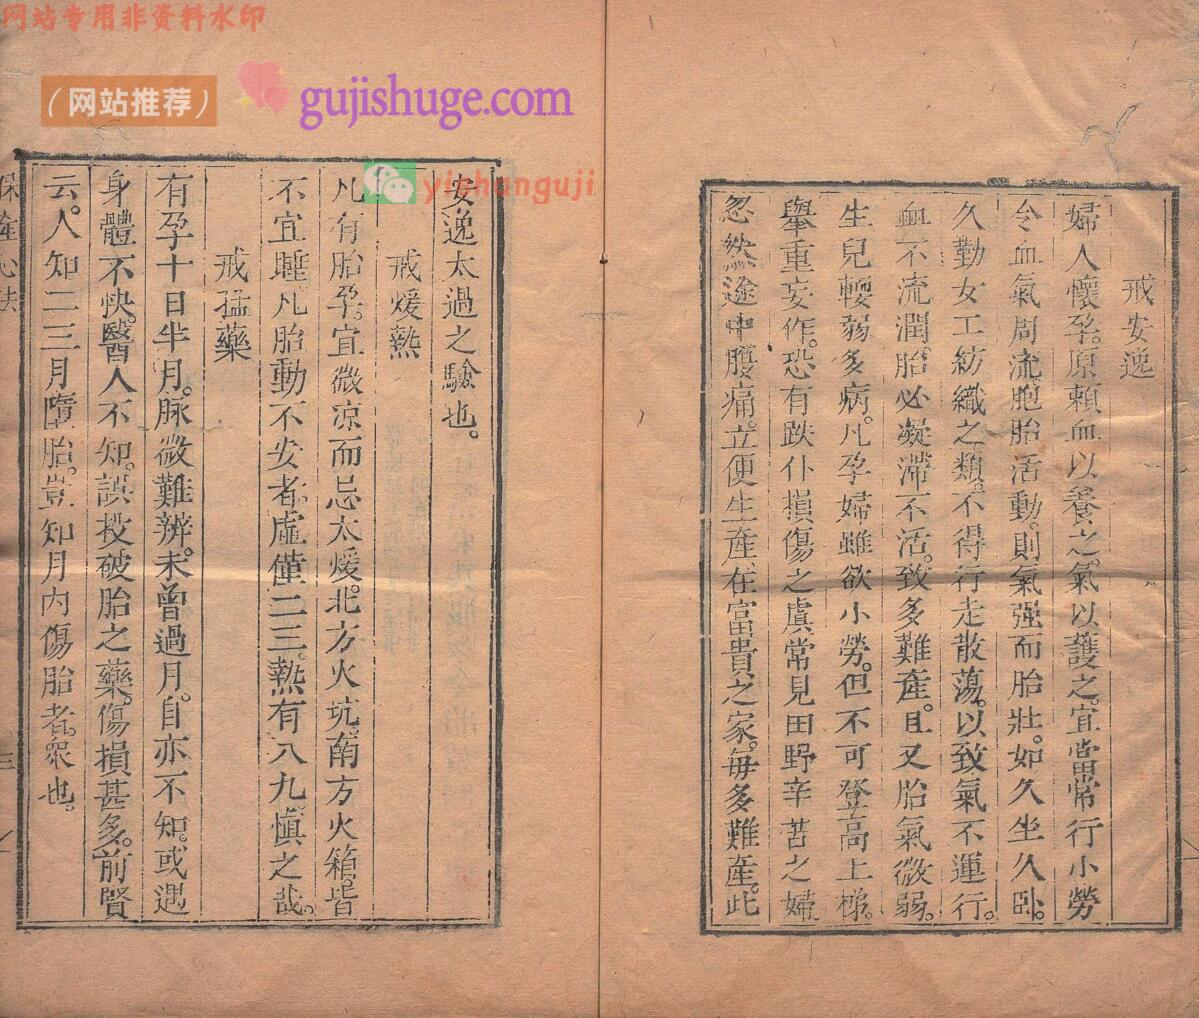 网站专用非资料水印
（网站推荐）
gujishuge.com
yishanguji
戒安逸
婦人懷孕。原賴血以養之。氣以護之。宜當常行小勞
令血氣周流胞胎活動。則氣强而胎壯。如久坐久臥。
久勤女工紡織之類。不得行走散蕩。以致氣不運行。
血不流潤。胎必凝滯不活。致多難產。且又胎氣微弱。
生兒輭弱多病。凡孕婦雖欲小勞。但不可登高上梯。
舉重妄作。恐有跌仆損傷之虞常見田野辛苦之婦
忽然途中腹痛。立便生產。在富貴之家。每多難產。此
安逸太過之驗也。
戒煖熱
凡有胎孕。宜微凉而忌太煖。北方火坑。南方火箱。皆
不宜睡。凡胎動不安者。虛僅二三。熱有八九。慎之哉。
戒猛藥
有孕十日半月。脉微難辨。未曾過月。自亦不知。或遇
身體不快。醫人不知。誤投破胎之藥。傷損甚多。前賢
云。人知二三月墮胎。豈知月內傷胎者。衆也。
保產心法
三